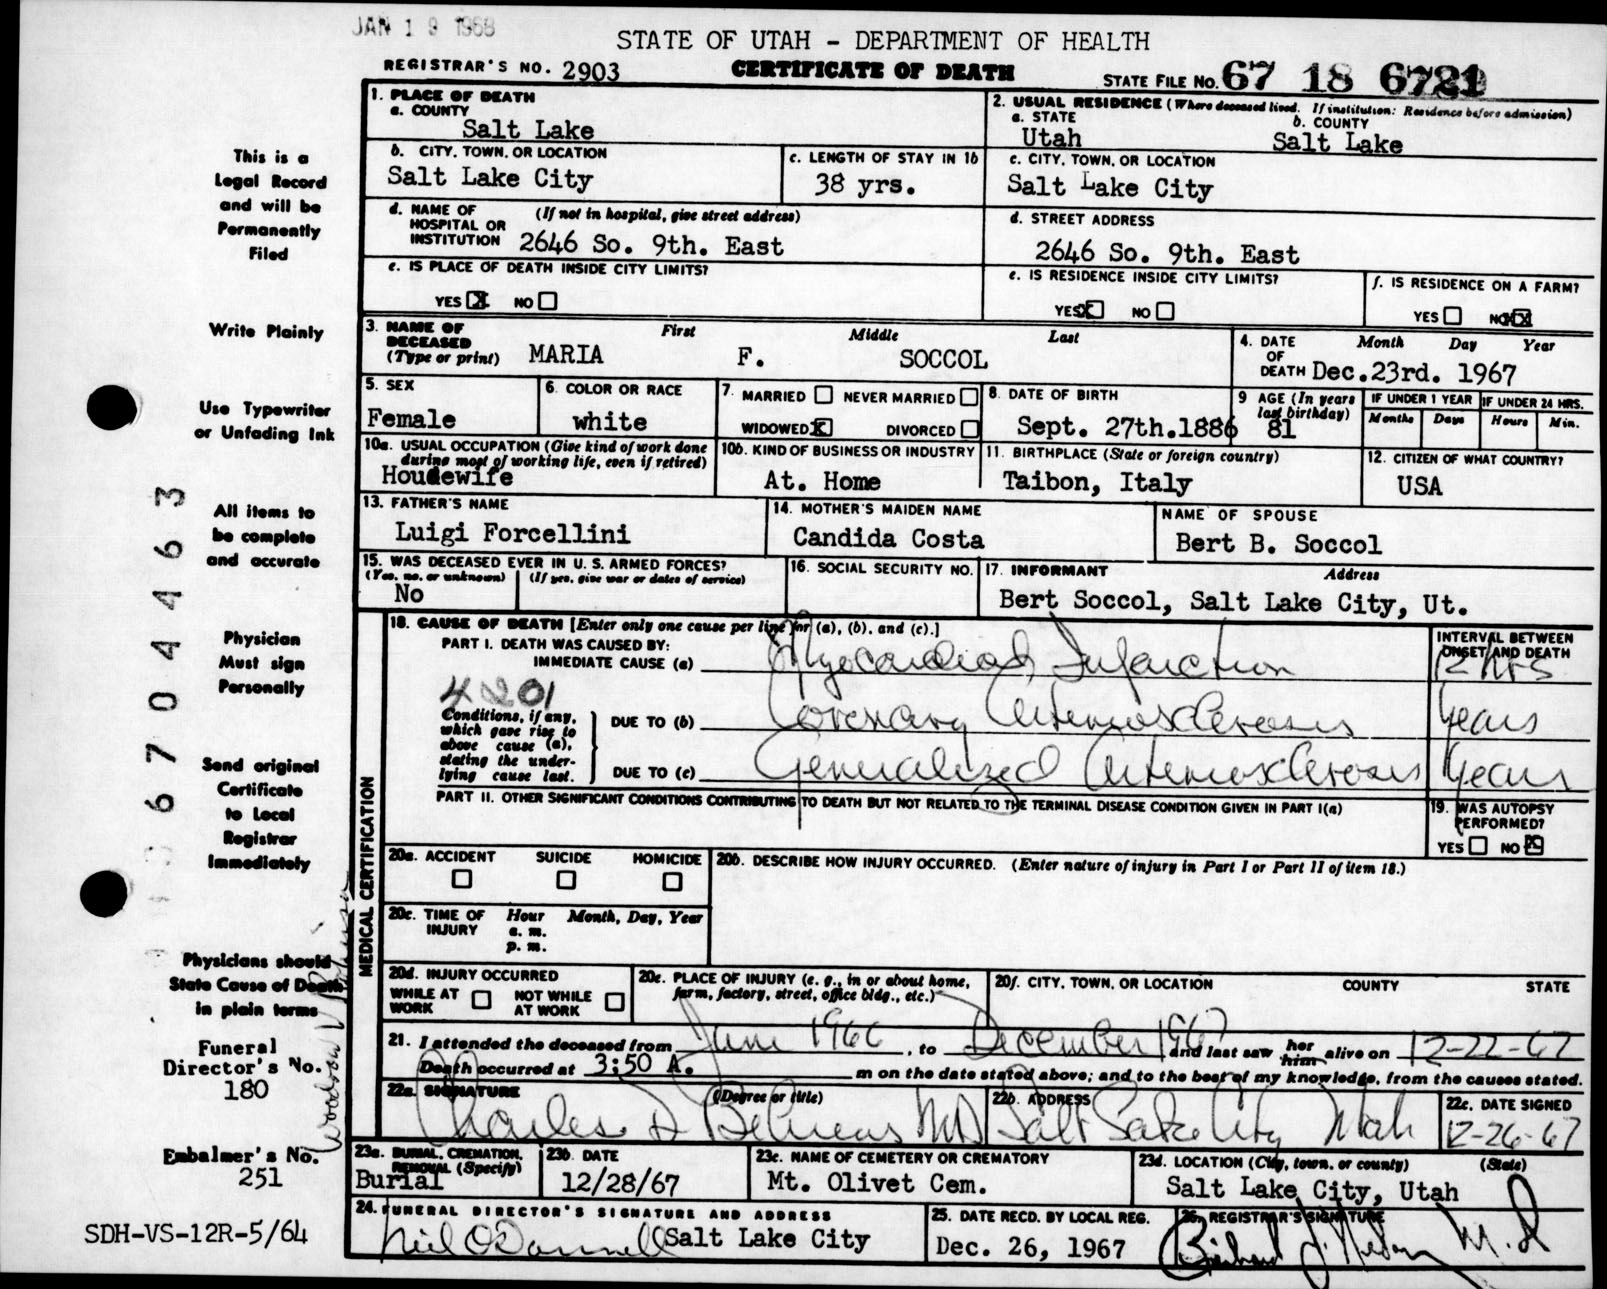 JAN 19 1968
STATE OF UTAH - DEPARTMENT OF HEALTH
REGISTRAR'S NO. 2903 CERTIFICATE OF DEATH STATE FILE NO. 67 18
1. PLACE OF DEATH
a. COUNTY
Salt Lake
2. USUAL RESIDENCE (Where deceased lived. If institution: Residence before admission)
a. STATE b. COUNTY
Utah Salt Lake
b. CITY, TOWN, OR LOCATION
Salt Lake City
c. LENGTH OF STAY IN 1b
38 yrs.
c. CITY, TOWN, OR LOCATION
Salt Lake City
d. NAME OF HOSPITAL OR INSTITUTION (If not in hospital, give street address)
2646 So. 9th. East
d. STREET ADDRESS
2646 So. 9th. East
e. IS PLACE OF DEATH INSIDE CITY LIMITS?
YES X NO
e. IS RESIDENCE INSIDE CITY LIMITS?
YES X NO
f. IS RESIDENCE ON A FARM?
YES NO XX
3. NAME OF DECEASED (Type or print) First Middle Last
MARIA F. SOCCOL
4. DATE OF DEATH Month Day Year
Dec.23rd. 1967
5. SEX
Female
6. COLOR OR RACE
white
7. MARRIED NEVER MARRIED
WIDOWED X DIVORCED
8. DATE OF BIRTH
Sept. 27th.1886
9 AGE (In years last birthday)
81
IF UNDER 1 YEAR IF UNDER 24 HRS.
Months Days Hours Min.
10a. USUAL OCCUPATION (Give kind of work done during most of working life, even if retired)
Houdewife
10b. KIND OF BUSINESS OR INDUSTRY
At. Home
11. BIRTHPLACE (State or foreign country)
Taibon, Italy
12. CITIZEN OF WHAT COUNTRY?
USA
13. FATHER'S NAME
Luigi Forcellini
14. MOTHER'S MAIDEN NAME
Candida Costa
NAME OF SPOUSE
Bert B. Soccol
15. WAS DECEASED EVER IN U. S. ARMED FORCES?
(Yes, no, or unknown) (If yes, give war or dates of service)
No
16. SOCIAL SECURITY NO.
17. INFORMANT Address
Bert Soccol, Salt Lake City, Ut.
MEDICAL CERTIFICATION
18. CAUSE OF DEATH [Enter only one cause per line for (a), (b), and (c).]
PART I. DEATH WAS CAUSED BY:
IMMEDIATE CAUSE (a) Myocardial Infarction
INTERVAL BETWEEN ONSET AND DEATH
12 hrs
4201
Conditions, if any, which gave rise to above cause (a), stating the underlying cause last.
DUE TO (b) Coronary Arteriosclerosis years
DUE TO (c) Generalized Arteriosclerosis years
PART II. OTHER SIGNIFICANT CONDITIONS CONTRIBUTING TO DEATH BUT NOT RELATED TO THE TERMINAL DISEASE CONDITION GIVEN IN PART I(a)
19. WAS AUTOPSY PERFORMED?
YES NO
20a. ACCIDENT SUICIDE HOMICIDE
20b. DESCRIBE HOW INJURY OCCURRED. (Enter nature of injury in Part I or Part II of item 18.)
20c. TIME OF INJURY Hour Month, Day, Year
a. m.
p. m.
20d. INJURY OCCURRED
WHILE AT WORK NOT WHILE AT WORK
20e. PLACE OF INJURY (e. g., in or about home, farm, factory, street, office bldg., etc.)
20f. CITY, TOWN, OR LOCATION COUNTY STATE
21. I attended the deceased from June 1966, to December 1967 and last saw her him alive on 12-22-67
Death occurred at 3:50 A. m on the date stated above; and to the best of my knowledge, from the causes stated.
22a. SIGNATURE (Degree or title)
Charles D Behrens MD
22b. ADDRESS
Salt Lake City Utah
22c. DATE SIGNED
12-26-67
23a. BURIAL, CREMATION, REMOVAL (Specify)
Burial
23b. DATE
12/28/67
23c. NAME OF CEMETERY OR CREMATORY
Mt. Olivet Cem.
23d. LOCATION (City, town, or county) (State)
Salt Lake City, Utah
24. FUNERAL DIRECTOR'S SIGNATURE AND ADDRESS
Neil O'Donnell Salt Lake City
25. DATE RECD. BY LOCAL REG.
Dec. 26, 1967
26. REGISTRAR'S SIGNATURE
M.D
This is a
Legal Record
and will be
Permanently
Filed
Write Plainly
Use Typewriter
or Unfading Ink
All items to
be complete
and accurate
Physician
Must sign
Personally
Send original
Certificate
to Local
Registrar
Immediately
Physicians should
State Cause of Death
in plain terms
Funeral
Director's No.
180
Embalmer's No.
251
SDH-VS-12R-5/64
6704463